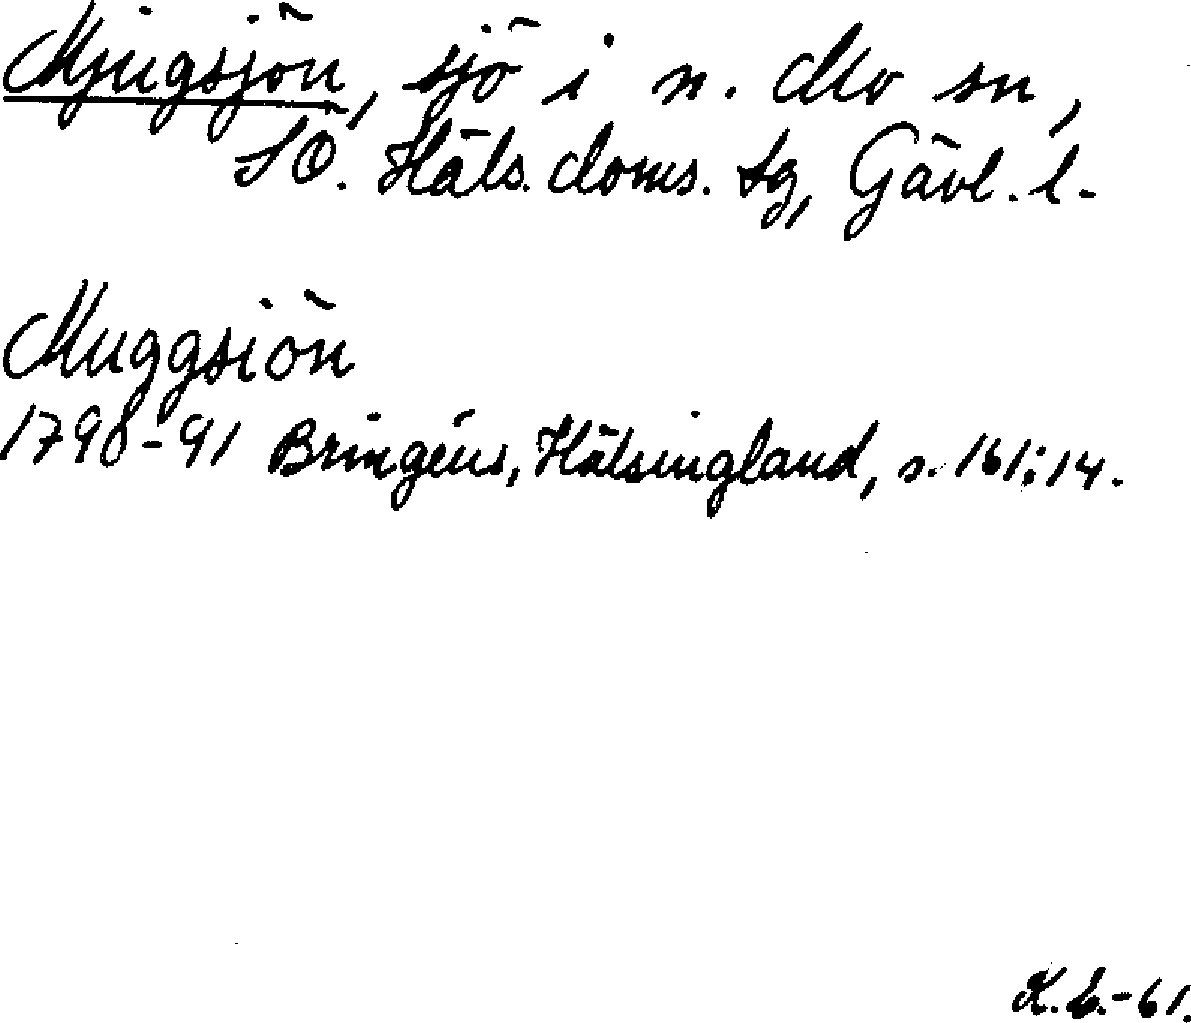 Mjugsjön, sjö i n. Mo sn,
SÖ. Häls. doms. tg, Gävl. l.
Muggsiön
1790-91 Bringéus, Hälsingland, s. 161:14.
K.L.-61.